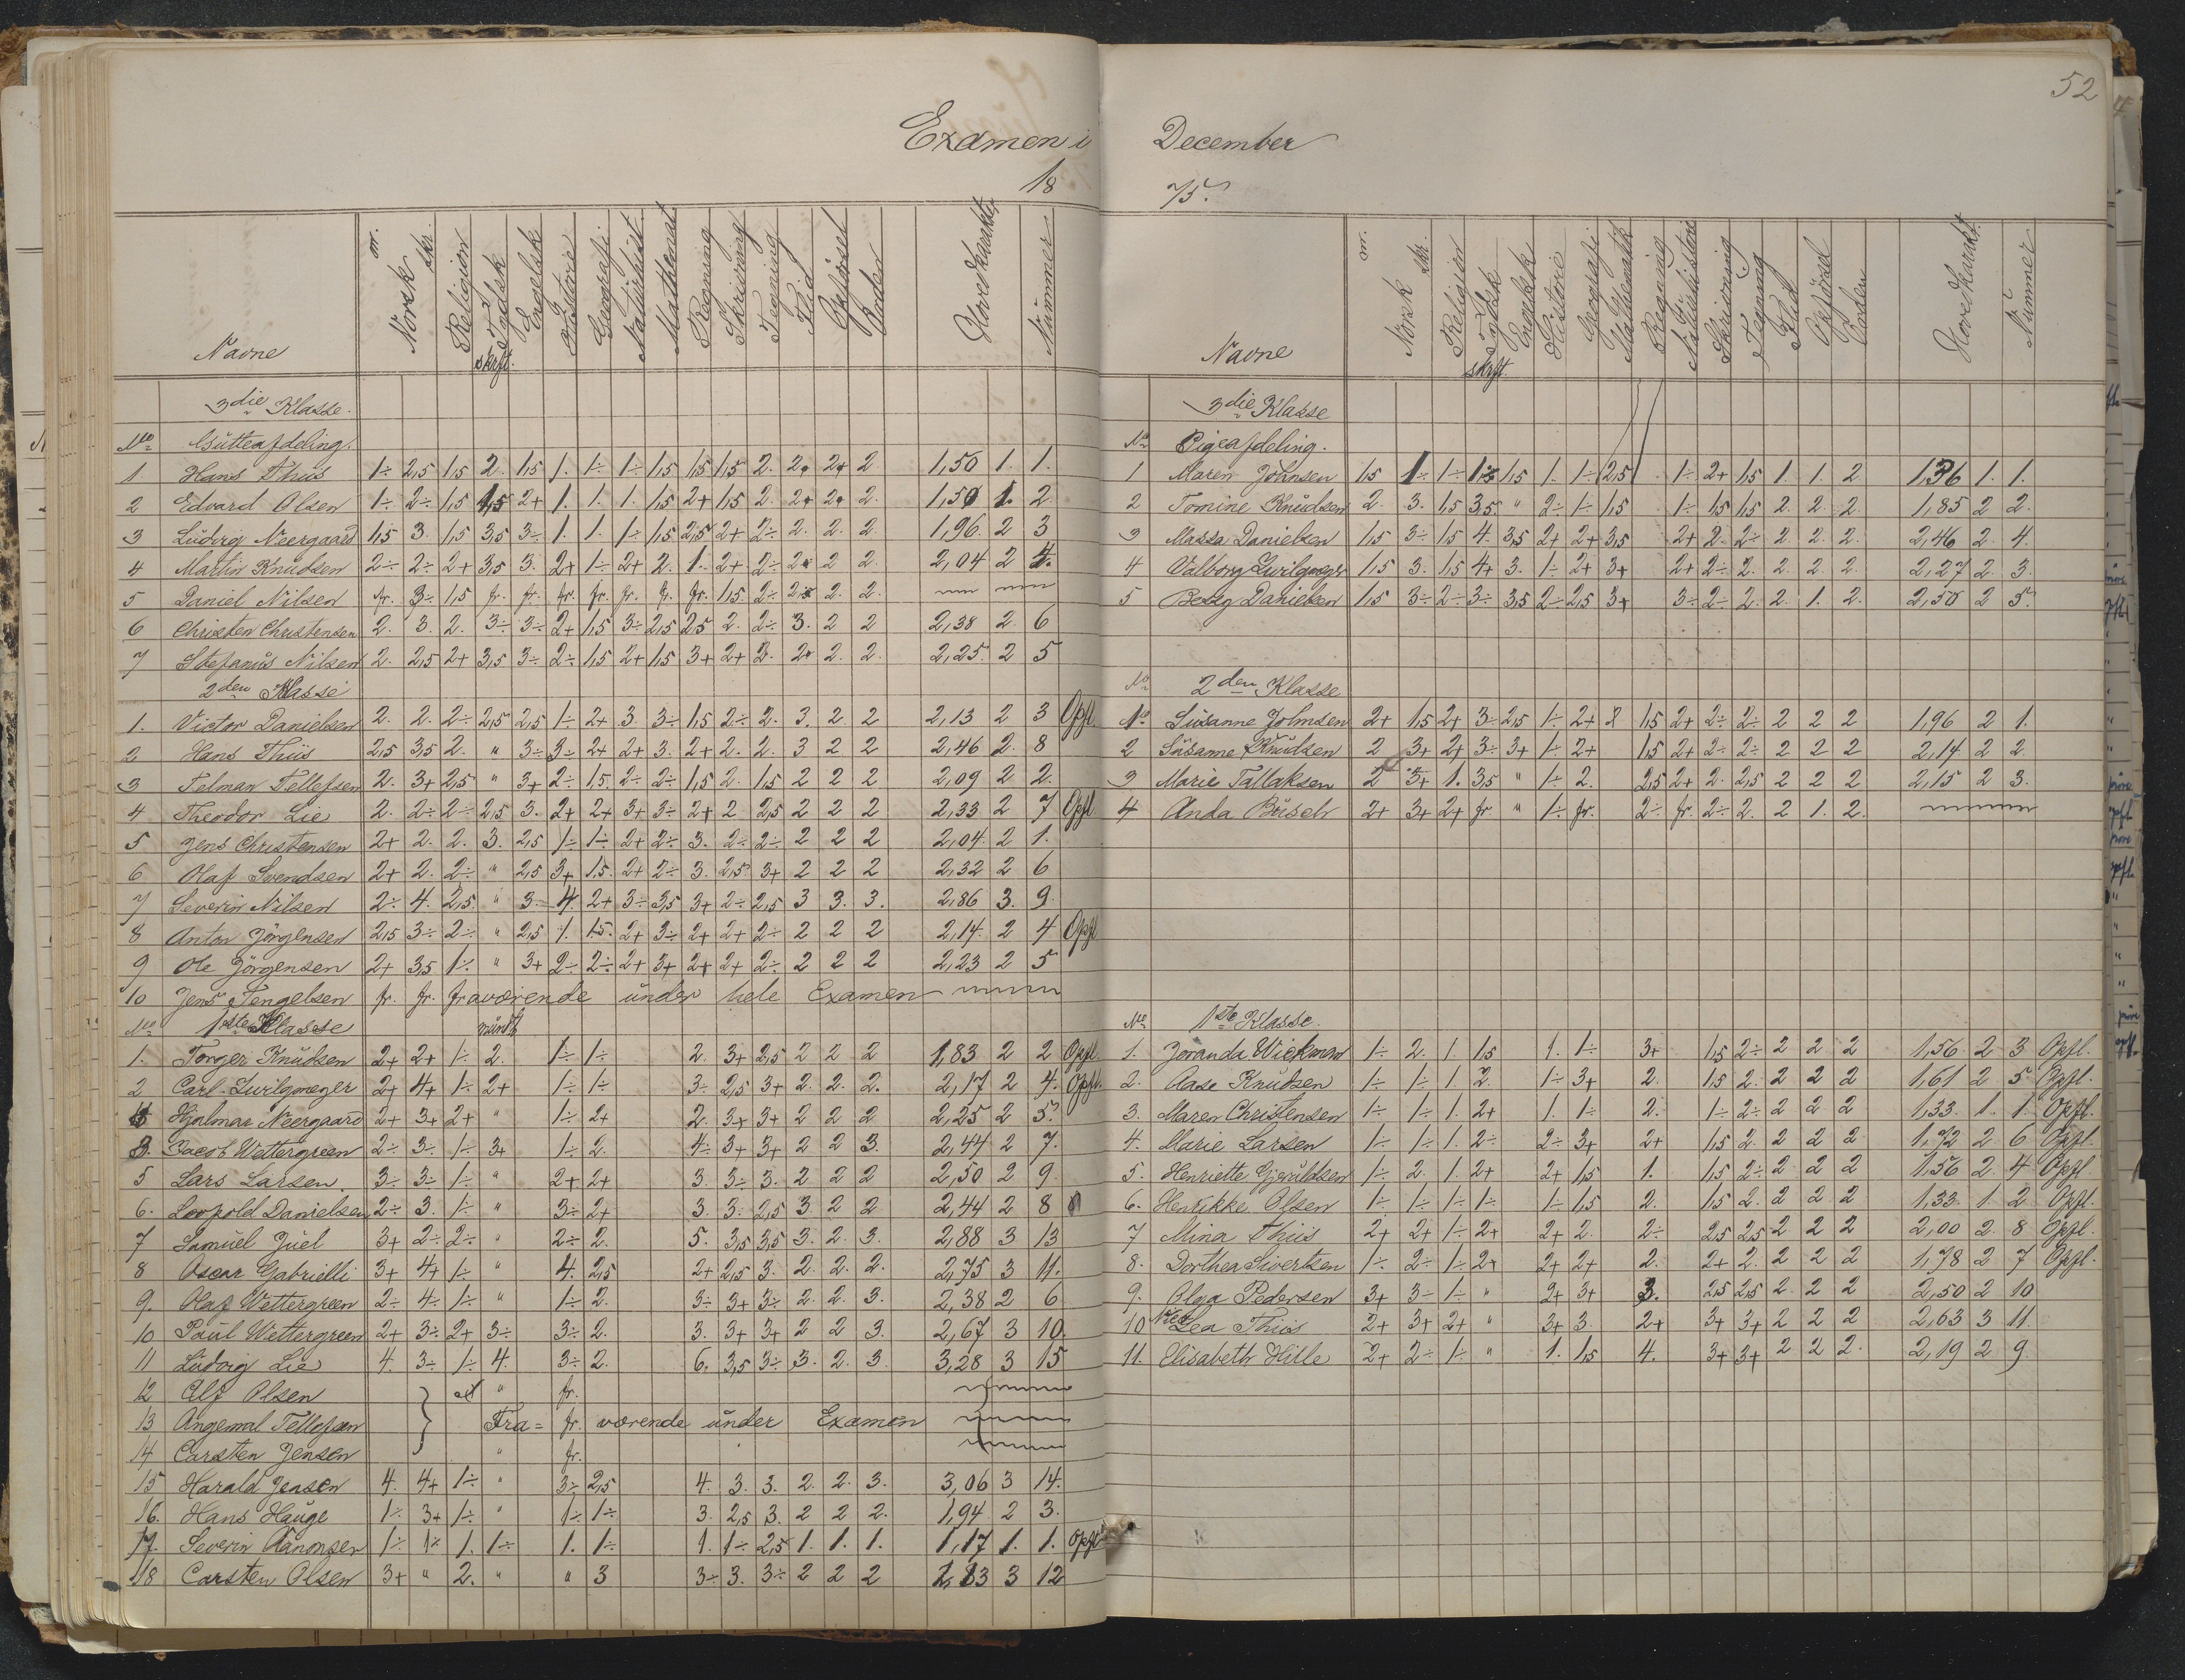 52
Examen i December
18 75.
Navne or. Norsk skr. Religion Tydsk skrft. Engelsk Historie Geografi Naturhist. Mathemat. Regning Skrivning Tegning Flid Opførsel Orden Hovedkarakter Nummer
3die Klasse.
No Gutteafdeling.
1. Hans Thiis 1÷ 2,5 1,5 2. 1,5 1. 1÷ 1÷ 1,5 1,5 1,5 2. 2. 2. 2 1,50 1. 1.
2 Edvard Olsen 1÷ 2÷ 1,5 1,5 2+ 1. 1. 1. 1,5 2+ 1,5 2. 2. 2. 2. 1,50 1. 2.
3 Ludvig Neergaard 1,5 3. 1,5 3,5 3÷ 1. 1. 1÷ 1,5 2,5 2+ 2÷ 2. 2. 2. 1,96 2 3
4 Martin Knudsen 2÷ 2÷ 2+ 3,5 3. 2+ 1÷ 2+ 2. 1. 2+ 2÷ 2. 2 2. 2,04 2 4.
5 Daniel Nilsen fr. 3÷ 1,5 fr. fr. fr. fr. fr. fr. fr. 1,5 2÷ 2. 2. 2.
6 Christen Christensen 2. 3. 2. 3÷ 3÷ 2+ 1,5 3÷ 2,5 2,5 2. 2÷ 3. 2 2 2,38 2. 6
7 Stefanus Nilsen 2. 2,5 2+ 3,5 3÷ 2÷ 1,5 2+ 1,5 3+ 2+ 2. 2. 2. 2. 2,25 2 5
2den Klasse
1. Victor Danielsen 2. 2. 2÷ 2,5 2,5 1÷ 2+ 3. 3÷ 1,5 2÷ 2. 3. 2. 2 2,13 2 3 Opfl.
2 Hans Thiis 2,5 3,5 2. " 3÷ 3÷ 2+ 2+ 3. 2+ 2. 2. 3 2 2 2,46 2. 8
3 Telman Tellefsen 2. 3+ 2,5 " 3+ 2÷ 1,5. 2÷ 2÷ 1,5 2. 1,5 2 2 2 2,09 2 2.
4 Theodor Lie 2. 2÷ 2÷ 2,5 3. 2+ 2+ 3+ 3÷ 2+ 2. 2,5 2 2 2 2,33 2 7 Opfl
5 Jens Christensen 2+ 2. 2. 3. 2,5 1÷ 1÷ 2+ 2÷ 3. 2÷ 2÷ 2 2 2 2,04. 2 1.
6 Olaf Svendsen 2+ 2. 2÷ " 2,5 3+ 1,5. 2+ 2÷ 3. 2,5 3+ 2 2 2 2,32 2 6
7 Severin Nilsen 2÷ 4. 2,5. " 3÷ 4. 2+ 3÷ 3,5 3+ 2÷ 2,5 3 3. 3. 2,86 3. 9.
8 Anton Jörgensen 2,5 3÷ 2÷ " 2,5 1. 1,5. 2+ 3÷ 2+ 2+ 2÷ 2 2 2 2,14. 2 4 Opfl
9 Ole Jörgensen 2+ 3,5 1÷ " 3+ 2÷ 2÷ 2+ 3+ 2+ 2+ 2÷ 2 2 2 2,23 2 5
10 Jens Tengelsen fr. fr. fraværende under hele Examen
No 1ste Klasse mündt
1. Torger Knudsen 2+ 2+ 1÷ 2. 1÷ 1÷ 2. 3+ 2,5 2 2 2 1,83 2 2 Opfl.
2 Carl Zwilgmeyer 2+ 4+ 1÷ 2+ 1÷ 1÷ 3÷ 2,5 3+ 2. 2. 2. 2,17 2 4. Opfl.
4 Hjalmar Neergaard 2+ 3+ 2+ " 1÷ 2+ 2. 3+ 3+ 2 2 2 2,25 2 5.
3. Jacob Wettergreen 2÷ 3÷ 1÷ 3+ 1÷ 2. 4÷ 3+ 3+ 2 2 3. 2,44 2 7.
5 Lars Larsen. 3÷ 3÷ 1÷ " 2+ 2+ 3. 3÷ 3. 2 2 2 2,50 2 9.
6. Leopold Danielsen 2÷ 3. 1÷ " 3÷ 2+ 3. 3÷ 2,5 3 2 2 2,44 2 8
7 Samuel Juel 3+ 2÷ 2÷ " 2÷ 2. 5. 3,5 3,5 3. 2. 3. 2,88 3 13
8 Oscar Gabrielli 3+ 4+ 1÷ " 4. 2,5 2+ 2,5 3. 2. 2. 2. 2,75 3 11.
9. Olaf Wettergreen 2÷ 4÷ 1÷ " 1÷ 2. 3÷ 3+ 3÷ 2. 2. 3. 2,38 2 6
10 Paul Wettergreen 2+ 3÷ 2+ 3÷ 3÷ 2. 3. 3+ 3+ 2 2 3. 2,67 3 10.
11 Ludvig Lie 4. 3÷ 1÷ 4. 3÷ 2. 6. 3,5 3÷ 3. 2. 3. 3,28 3 15
12 Alf Olsen " fr.
13 Angemal Tellefsen Fra= fr. værende under Examen
14 Carsten Jensen " fr.
15 Harald Jensen 4. 4+ 1÷ " 3÷ 2,5 4. 3. 3. 2. 2. 3. 3,06 3 14.
16. Hans Hauge 1÷ 3+ 1÷ " 1÷ 1÷ 3. 2,5 3. 2 2 2. 1,94 2 3.
17. Severin Aanonsen 1÷ 1÷ 1. 1÷ 1. 1÷ 1. 1÷ 2,5 1. 1. 1. 1,17 1. 1. Opfl.
18 Carsten Olsen 3+ " 2. " " 3 3÷ 3. 3÷ 2 2 2 2,83 3 12
Navne or. Norsk skr. Religion Tydsk skrft. Engelsk Historie Geografi Mathematik Regning Naturhistorie Skrivning Tegning Flid Opførsel Orden Hovedkarakt. Nummer
3die Klasse
No Pigeafdeling.
1 Maren Johnsen 1,5 1÷ 1÷ 1÷ 1,5 1. 1÷ 2,5 1÷ 2+ 1,5 1. 1. 2 1,36 1. 1.
2 Tomine Knudsen 2. 3. 1,5 3,5 " 2÷ 1÷ 1,5 1÷ 1,5 1,5 2. 2. 2. 1,85 2 2.
3 Massa Danielsen 1,5 3÷ 1,5 4. 3,5 2+ 2+ 3,5 2+ 2. 2÷ 2. 2. 2. 2,46 2. 4.
4 Valborg Zwilgmeyer 1,5 3. 1,5 4+ 3. 1÷ 2+ 3+ 2+ 2÷ 2. 2. 2. 2. 2,27 2. 3.
5 Bessy Danielsen 1,5 3÷ 2÷ 3÷ 3,5 2÷ 2,5 3+ 3÷ 2÷ 2. 2. 1. 2. 2,50 2 5.
No 2den Klasse
1. Susanne Johnsen 2+ 1,5 2+ 3÷ 2,5 1÷ 2+ 1,5 2+ 2÷ 2÷ 2 2 2 1,96 2 1.
2 Susanne Knudsen 2 3+ 2+ 3÷ 3+ 1÷ 2+ 1,5 2+ 2÷ 2÷ 2 2 2 2,14. 2 2.
3 Marie Tallaksen 2 3+ 1. 3,5 " 1÷ 2. 2,5 2+ 2. 2,5 2 2 2 2,15 2 3.
4 Anda Busch 2+ 3+ 2+ fr. " 1÷ fr. 2÷ fr. 2÷ 2. 2 1. 2.
No 1ste Klasse.
1. Joranda Wickman 1÷ 2. 1. 1,5 1. 1÷ 3+ 1,5 2÷ 2 2 2 1,56 2 3 Opfl.
2. Aase Knudsen 1÷ 1÷ 1. 2. 1÷ 3+ 2. 1,5 2. 2 2 2 1,61 2 5 Opfl.
3. Maren Christensen 1÷ 1÷ 1. 2+ 1. 1÷ 2. 1÷ 2÷ 2 2 2 1,33 1. 1. Opfl.
4. Marie Larsen 1÷ 1÷ 1. 2÷ 2÷ 3+ 2+ 1,5 2. 2 2 2 1,72 2 6 Opfl.
5. Henriette Gjeruldsen 1÷ 2. 1. 2+ 2+ 1,5 1. 1,5 2÷ 2 2 2 1,56 2. 4. Opfl
6. Henrikke Olsen 1÷ 1÷ 1÷ 1÷ 1÷ 1,5 2. 1,5 2. 2 2 2 1,33. 1. 2. Opfl.
7 Mina Thiis 2+ 2+ 1÷ 2+ 2+ 2. 2÷ 2,5 2,5 2 2 2 2,00 2. 8 Opfl.
8. Dorthea Sivertsen 1÷ 2÷ 1÷ 2+ 2+ 2+ 2. 2+ 2. 2 2 2 1,78 2 7 Opfl.
9. Olga Pedersen 3+ 3÷ 1÷ " 2+ 3+ 3. 2,5 2,5 2. 2 2 2,50 2 10
10 Lea Thiis 2+ 3+ 2+ " 3+ 3. 2+ 3+ 3+ 2 2 2 2,63 3 11.
11. Elisabeth Hille 2+ 2÷ 1÷ " 1. 1,5 4. 3+ 3+ 2 2 2. 2,19 2 9